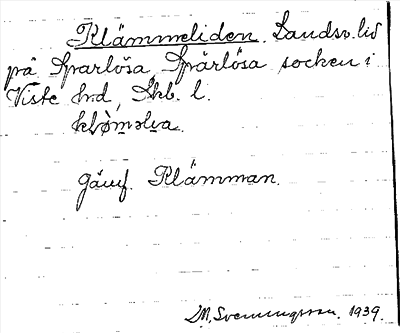 Klämmeliden. Landsv. lid
på Sparlösa, Sparlösa socken i
Viste hrd, Skb. l.
Jämf. Klämman.
M. Svenungsson. 1939.